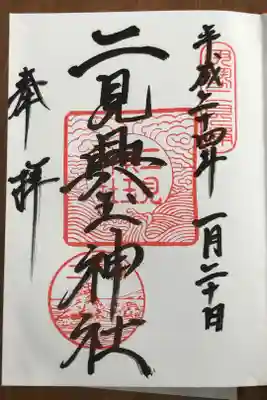 平成二十四年 一月二十日
二見興玉神社
奉拝